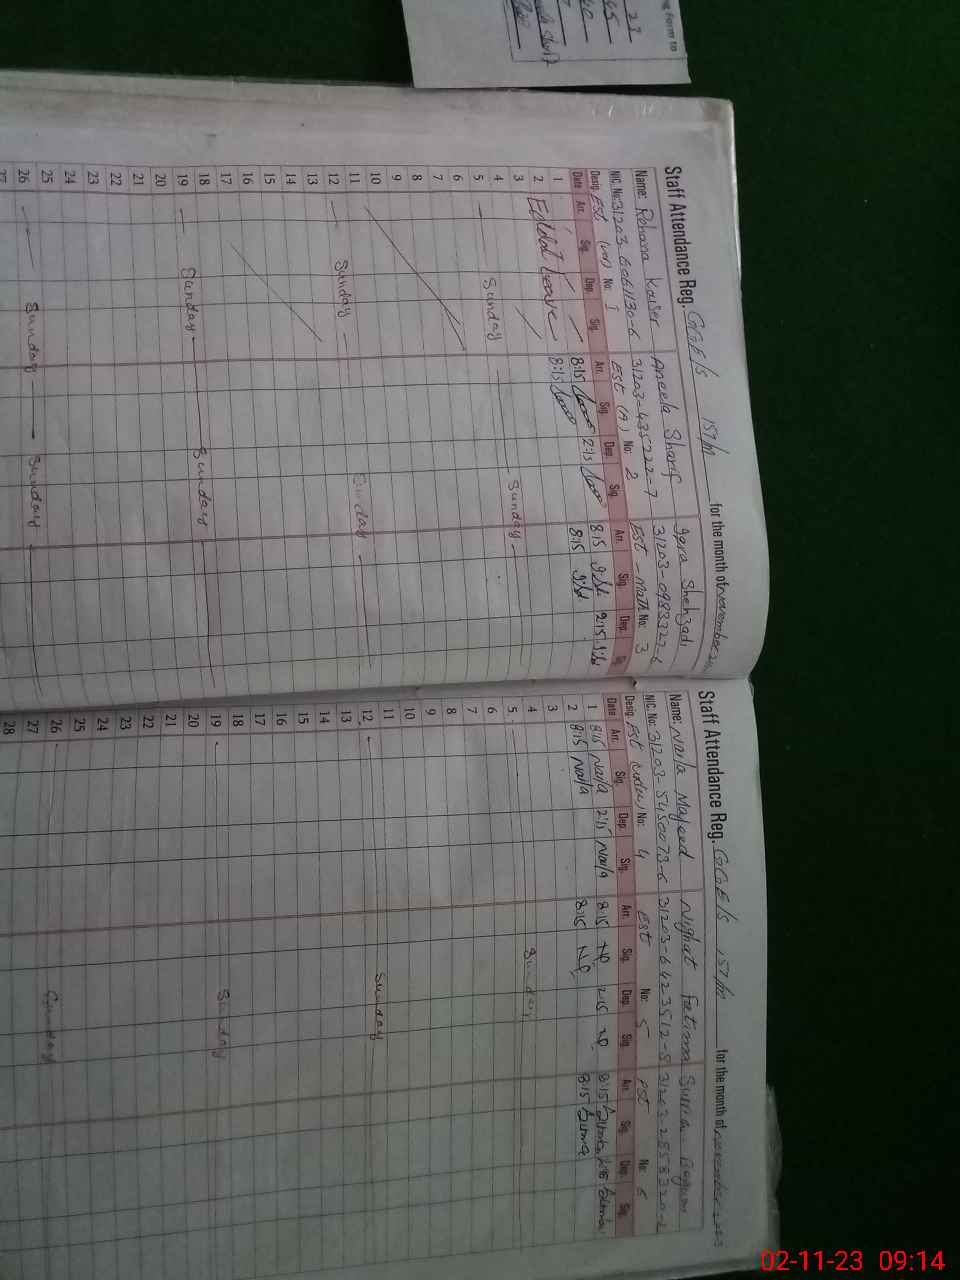 ng Form to
23
45
Staff Attendance Reg. GGE/S 157/M for the month of november
Name: Rehana Kaiser Aneela Sharif Iqra Shehzadi
NIC. No: 31203-6061130-6 31203-4352 31203-0983327-6
Desig. EST No: 1 EST (A) No: 2 EST - Math No: 3
Date Arr. Sig. Dep. Sig. Arr. Sig. Dep. Sig. Arr. Sig. Dep.
1 Eddat Leave 8:15 2:15 8:15 2:15
2 8:15 8:15
3
4
5 Sunday Sunday
6
7
8
9
10
11
12 Sunday Sunday
13
14
15
16
17
18
19 Sunday Sunday
20
21
22
23
24
25
26 Sunday Sunday
27
Staff Attendance Reg. GGE/S 157/M for the month of november 2023
Name: Naila Majeed Nighat Fatima
NIC. No: 31203-5450073-6 31203-6423512-8 31203-2858320-2
Desig. EST No: 4 EST No: 5 PST No: 6
Date Arr. Sig. Dep. Sig. Arr. Sig. Dep. Sig. Arr. Sig. Dep. Sig.
1 8:15 Naila 2:15 Naila 8:15 NF 2:15 NF 8:15
2 8:15 Naila 8:15 NF 8:15
3
4
5 Sunday
6
7
8
9
10
11
12 Sunday
13
14
15
16
17
18
19 Sunday
20
21
22
23
24
25
26 Sunday
27
28
02-11-23 09:14